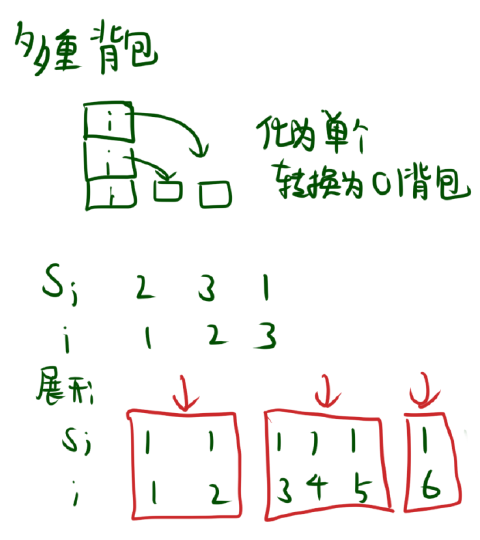 多重背包
i
i
i
化为单个
转换为01背包
Si 2 3 1
i 1 2 3
展开
Si 1 1 1 1 1 1
i 1 2 3 4 5 6